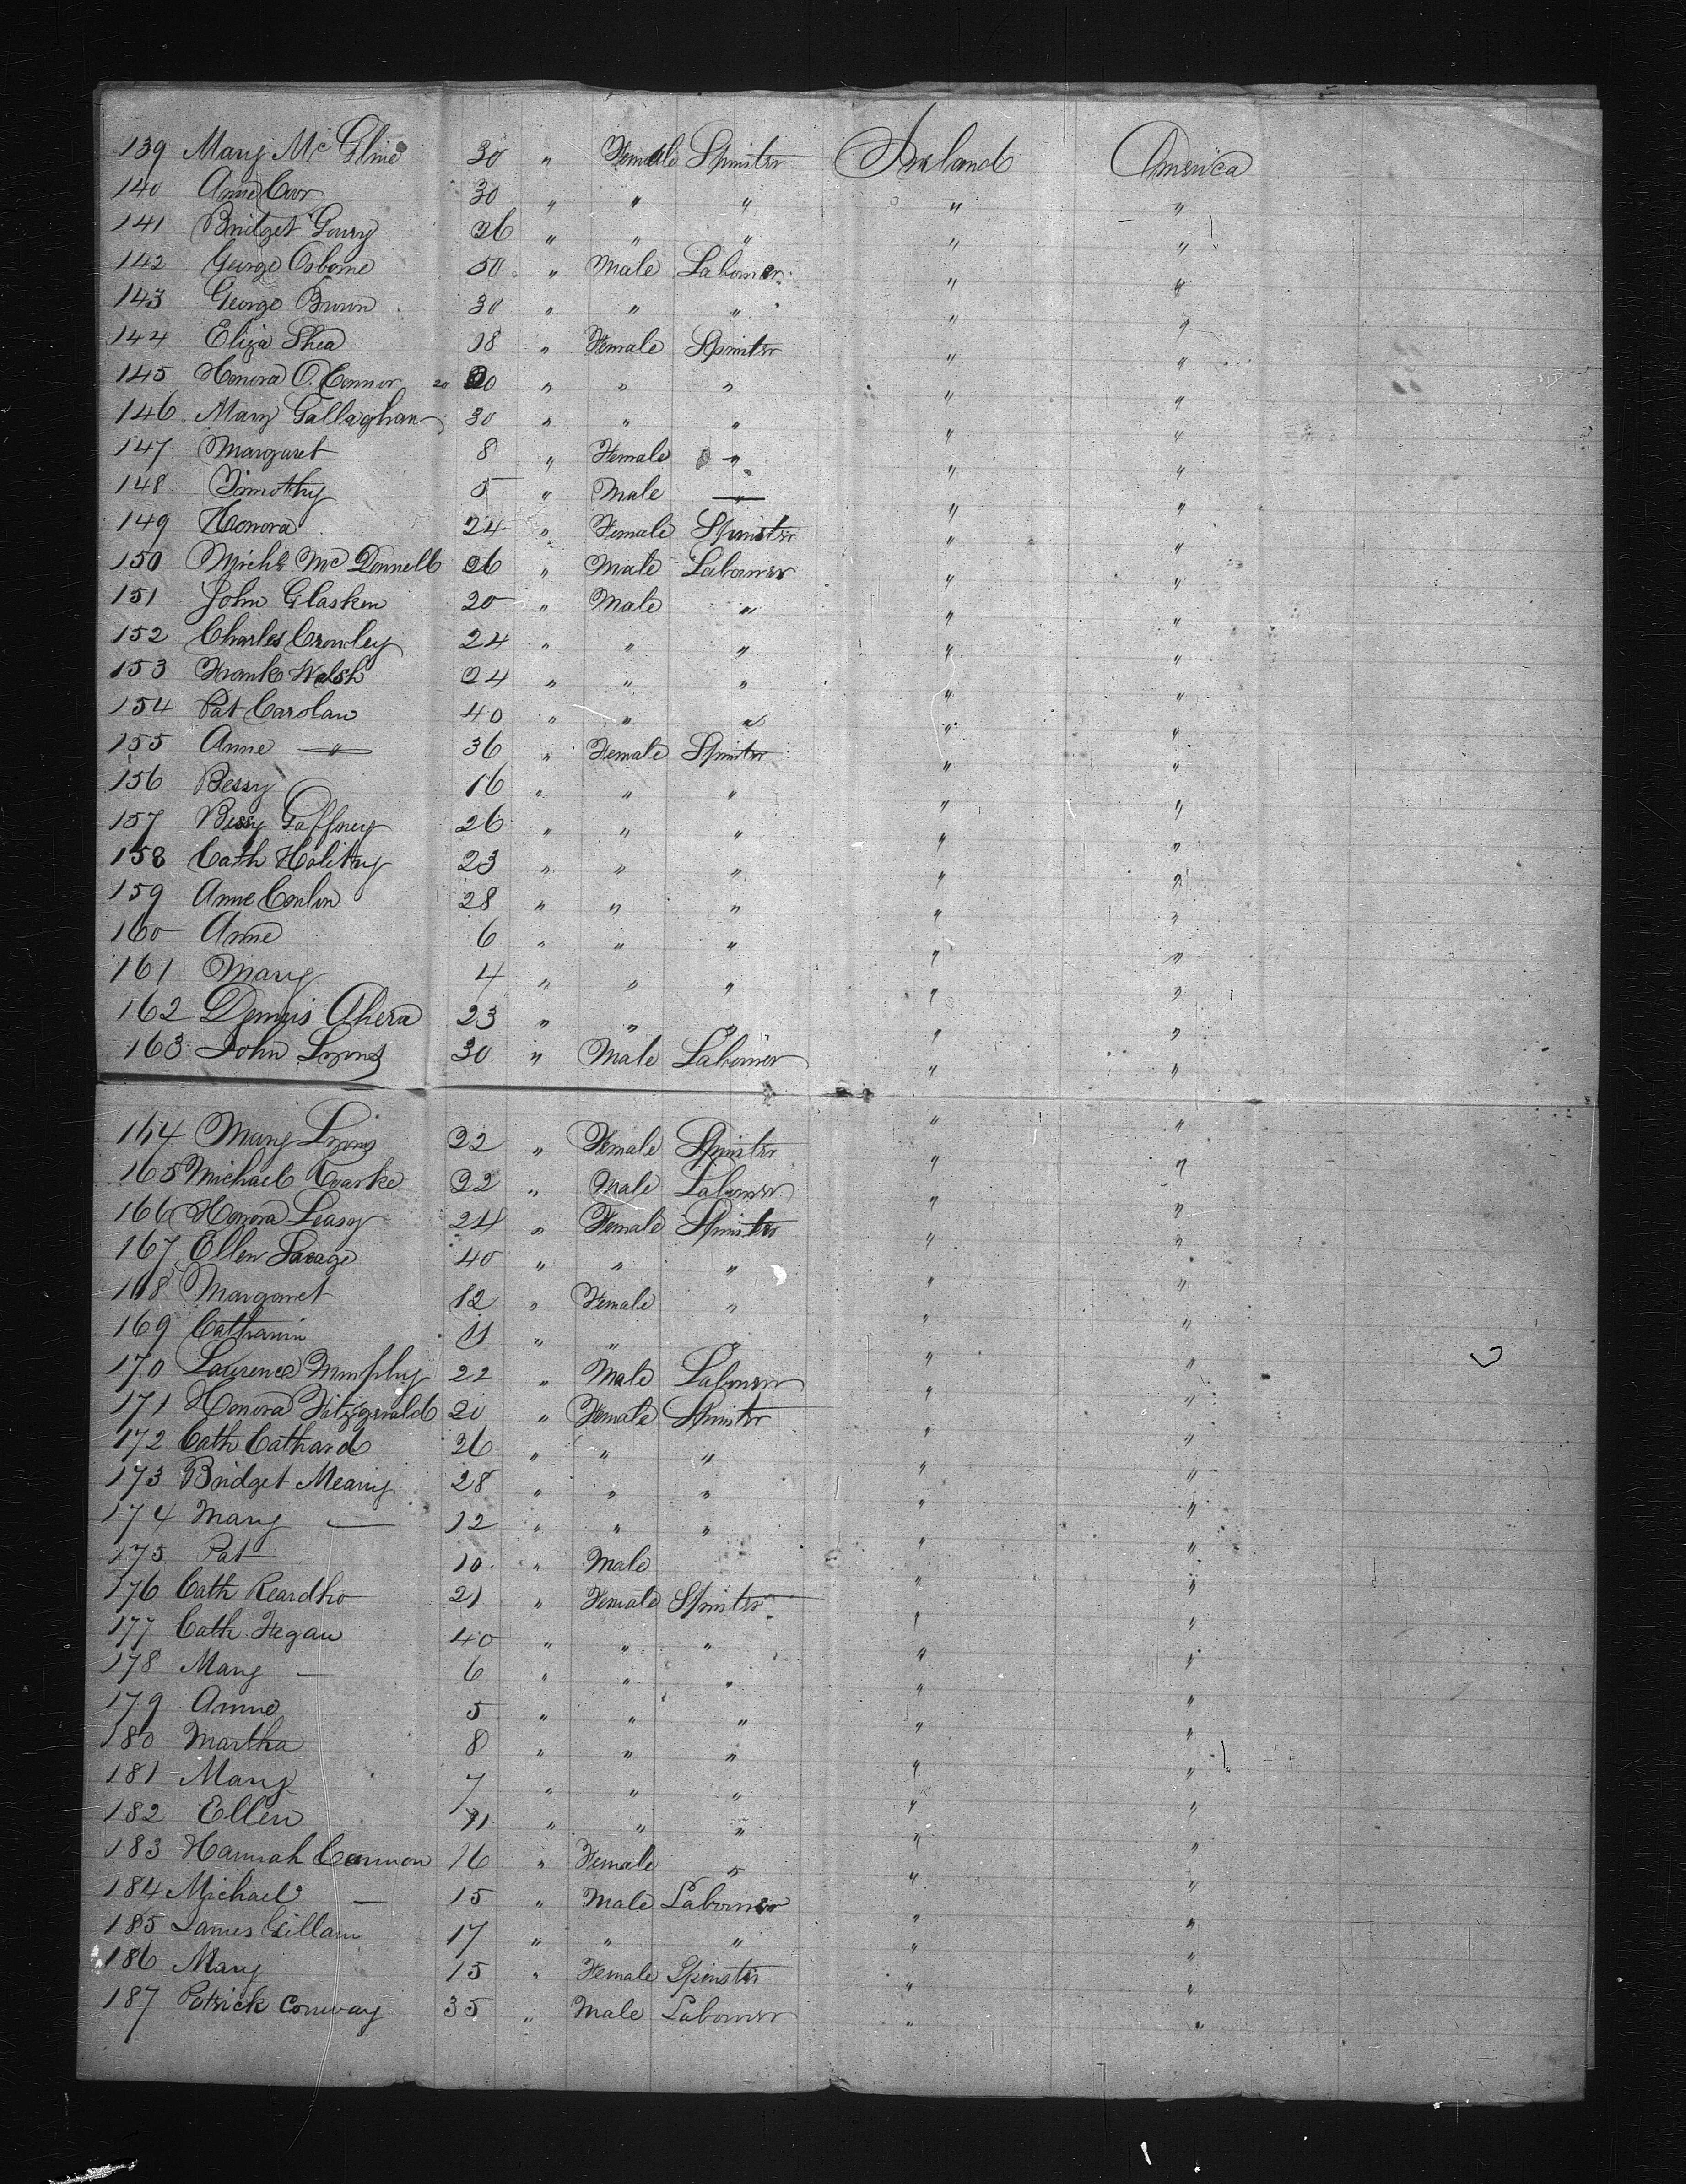 139 Mary McGline 30 " Female Spinster Ireland America
140 Anne Coor 30 " " " " "
141 Bridget Goury 26 " " " " "
142 George Osborne 50 " Male Labourer " "
143 George Brown 30 " " " " "
144 Eliza Shea 18 " Female Spinster " "
145 Honora O.Connor 20 20 " " " " "
146 Mary Gallaghan 30 " " " " "
147 Margaret 8 " Female " " "
148 Timothy 5 " Male " " "
149 Honora 24 " Female Spinster " "
150 Michl McDonnell 26 " Male Labourer " "
151 John Glasken 20 " Male " " "
152 Charles Crowley 24 " " " " "
153 Frank Welsh 24 " " " " "
154 Pat Carolan 40 " " " " "
155 Anne " 36 " Female Spinster " "
156 Bessy 16 " " " " "
157 Bessy Gaffney 26 " " " " "
158 Cath 23 " " " " "
159 Anne Conlon 28 " " " " "
160 Anne 6 " " " " "
161 Mary 4 " " " " "
162 Dennis Ahera 23 " " " " "
163 John Lyons 30 " Male Labourer " "
164 Mary Lyons 22 " Female Spinster " "
165 Michael Roarke 22 " Male Labourer " "
166 Honora Leasy 24 " Female Spinster " "
167 Ellen Savage 40 " " " " "
168 Margaret 12 " Female " " "
169 Catharin 11 " " " " "
170 Laurence Murphy 22 " Male Labourer " "
171 Honora Fitzgerald 20 " Female Spinster " "
172 Cath Cathard 26 " " " " "
173 Bridget Meany 28 " " " " "
174 Mary — 12 " " " " "
175 Pat 10 " Male " "
176 Cath Reardho 21 " Female Spinster " "
177 Cath Fegan 40 " " " " "
178 Mary — 6 " " " " "
179 Anne 5 " " " " "
180 Martha 8 " " " " "
181 Mary 7 " " " " "
182 Ellen 11 " " " " "
183 Hannah Cannon 16 " Female " " "
184 Michael — 15 " Male Labourer " "
185 James Gillam 17 " " " " "
186 Mary 15 " Female Spinster " "
187 Patrick Conway 35 " Male Labourer " "